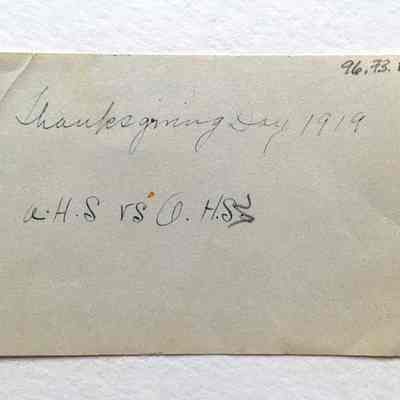 96.73.
Thanksgiving Day 1919
a.H.S vs O.H.S